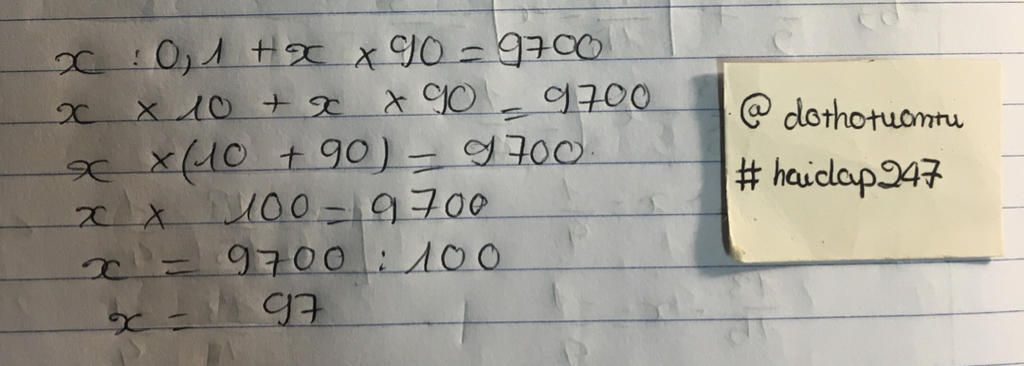 x : 0,1 + x × 90 = 9700
x × 10 + x × 90 = 9700
x × (10 + 90) = 9700
x × 100 = 9700
x = 9700 : 100
x = 97
@ dothotuantu
# haidap247